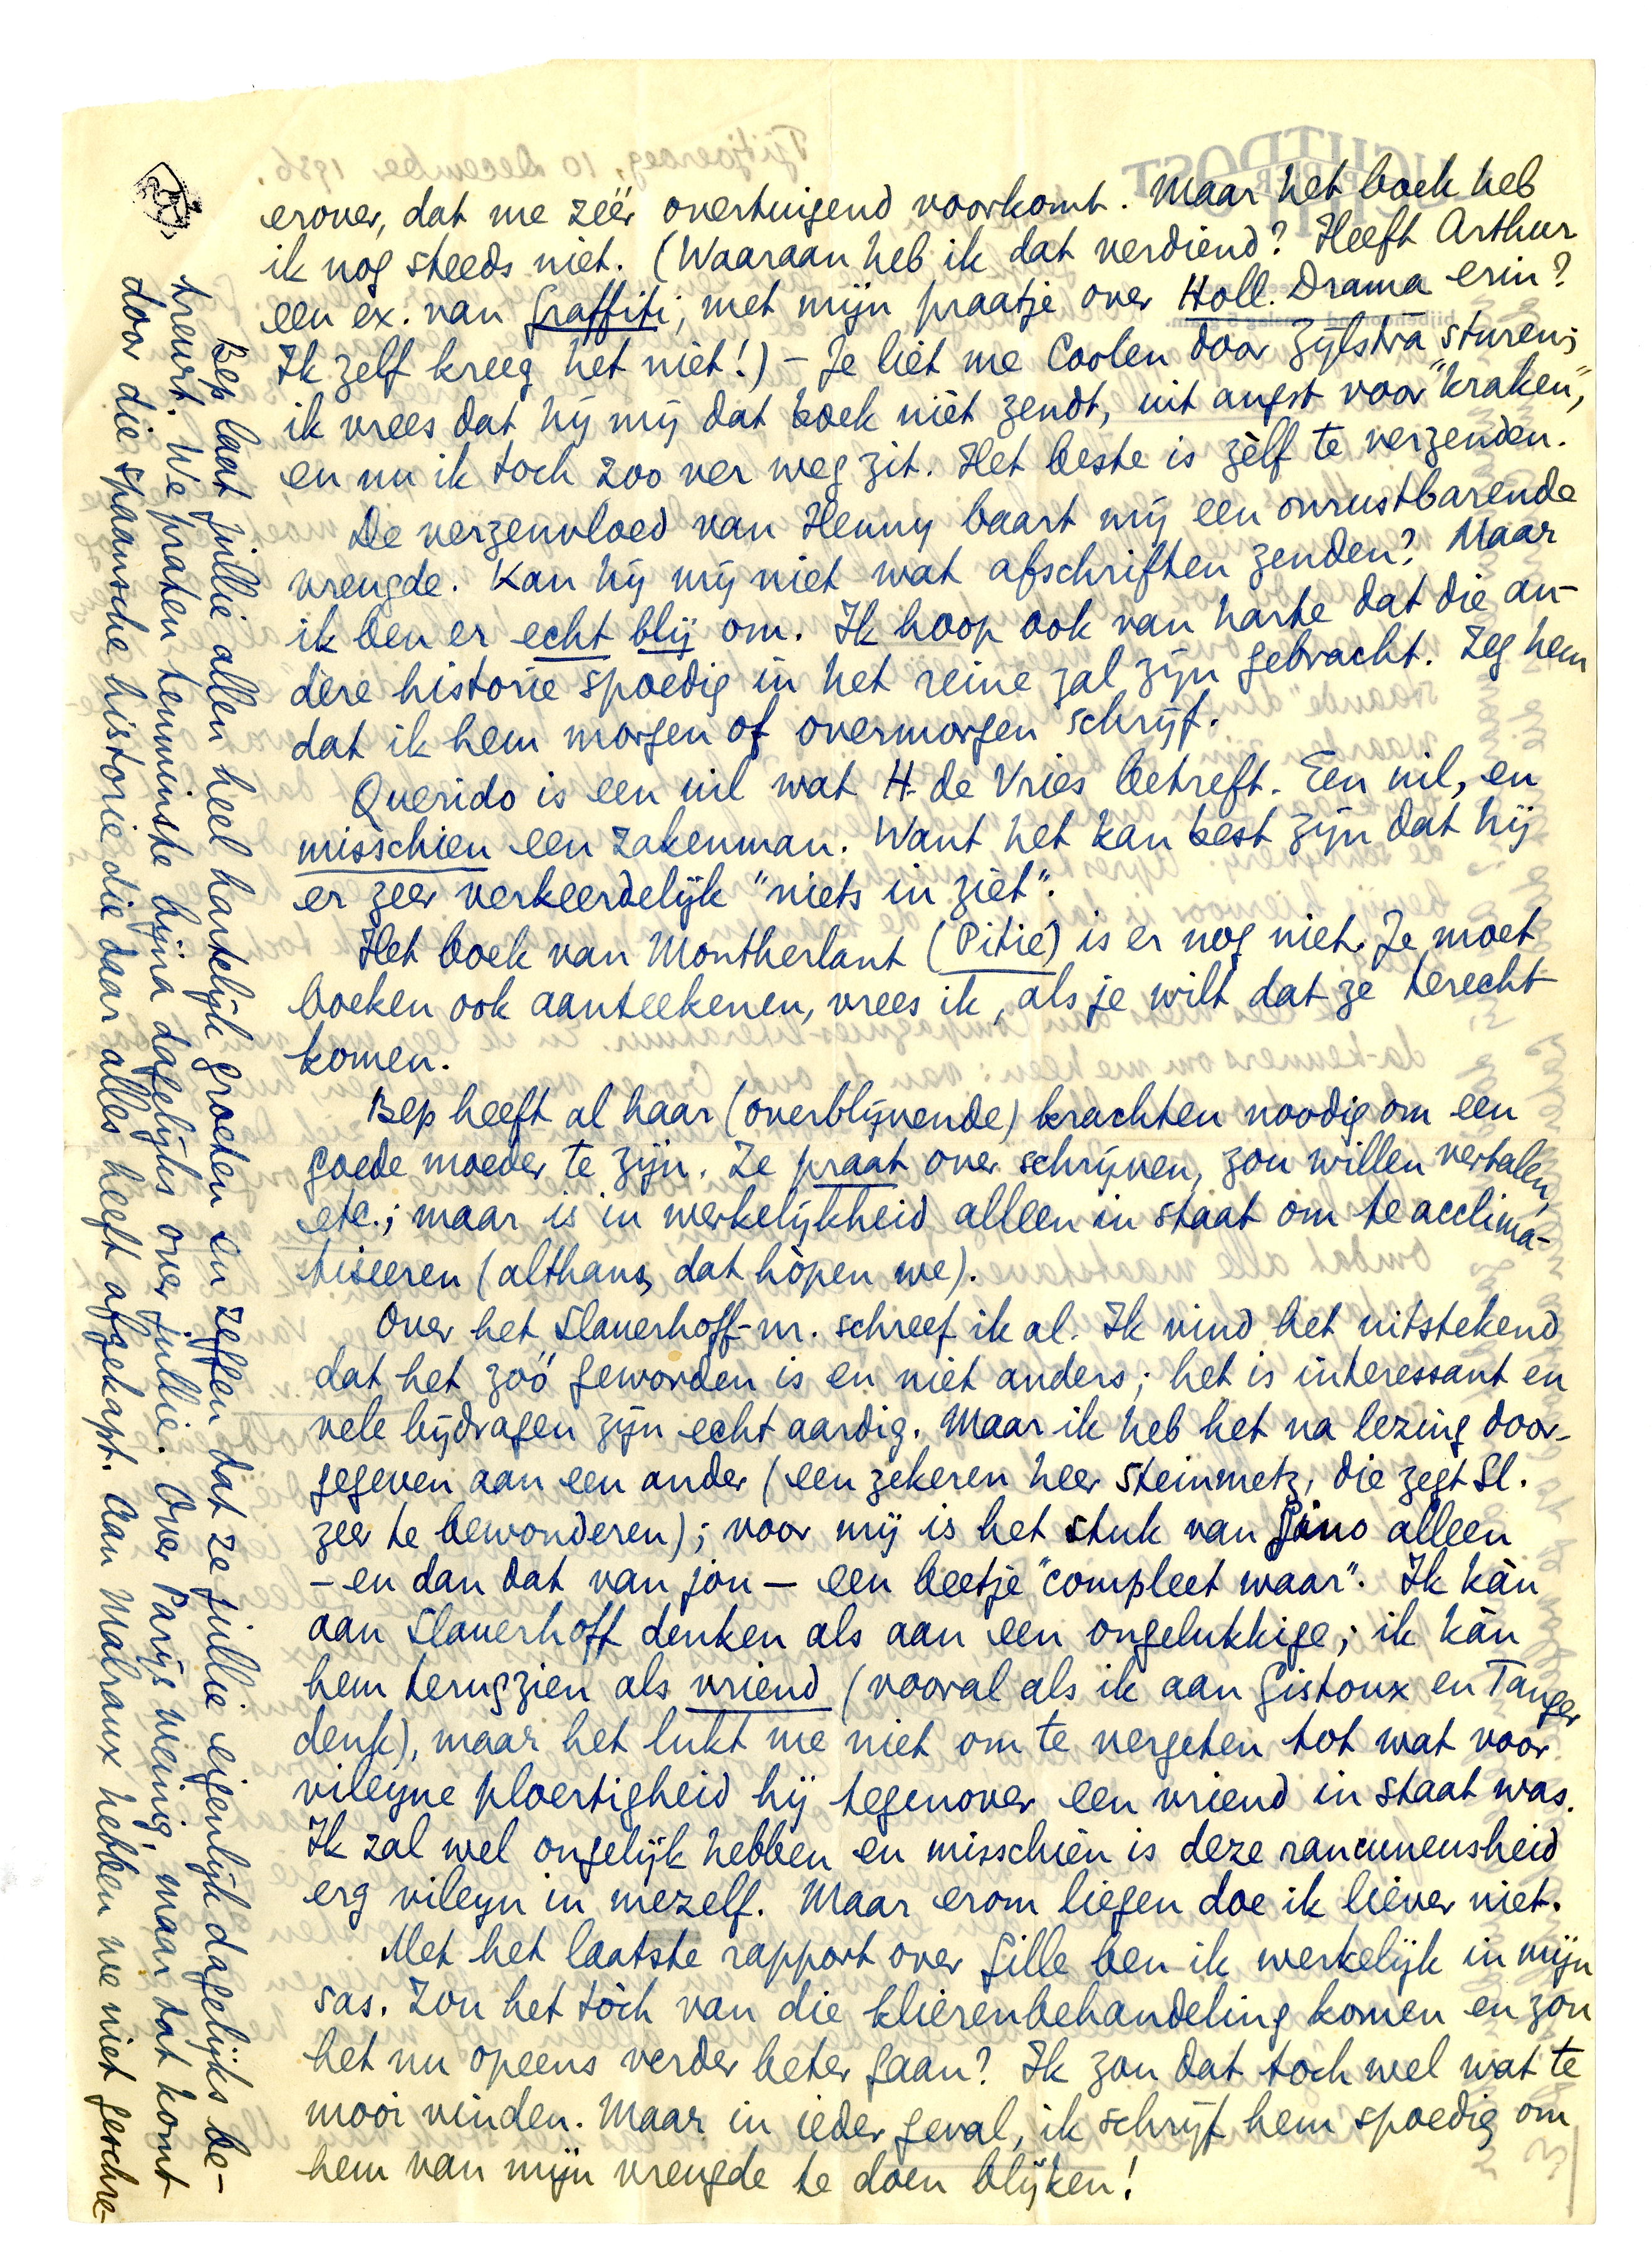 erover, dat me zéér overtuigend voorkomt. Maar het boek heb
ik nog steeds niet. (Waaraan heb ik dat verdiend? Heeft Arthur
een ex. van Graffiti, met mijn praatje over Holl. Drama erin?
Ik zelf kreeg het niet!) – Je liet me Coolen door Zijlstra sturen;
ik vrees dat hij mij dat boek niet zendt, uit angst voor "kraken",
en nu ik toch zoo ver weg zit. Het beste is zèlf te verzenden.
De verzenvloed van Henny baart mij een onrustbarende
vreugde. Kan hij mij niet wat afschriften zenden? Maar
ik ben er echt blij om. Ik hoop ook van harte dat die an-
dere historie spoedig in het reine zal zijn gebracht. Zeg hem
dat ik hem morgen of overmorgen schrijf.
Querido is een uil wat H. de Vries betreft. Een uil, en
misschien een zakenman. Want het kan best zijn dat hij
er zeer verkeerdelijk "niets in ziet".
Het boek van Montherlant (Pitié) is er nog niet. Je moet
boeken ook aanteekenen, vrees ik, als je wilt dat ze terecht
komen.
Bep heeft al haar (overblijvende) krachten noodig om een
goede moeder te zijn. Ze praat over schrijven, zou willen vertalen,
etc.; maar is in werkelijkheid alleen in staat om te acclima-
tiseeren (althans, dat hòpen we).
Over het Slauerhoff-nr. schreef ik al. Ik vind het uitstekend
dat het zóó geworden is en niet anders; het is interessant en
vele bijdragen zijn echt aardig. Maar ik heb het na lezing door-
gegeven aan een ander (een zekeren heer Steinmetz, die zegt Sl.
zeer te bewonderen); voor mij is het stuk van Gino alleen
– en dan dat van jou – een beetje "compleet waar". Ik kàn
aan Slauerhoff denken als aan een ongelukkige; ik kàn
hem terugzien als vriend (vooral als ik aan Gistoux en Tanger
denk), maar het lukt me niet om te vergeten tot wat voor
vileyne ploertigheid hij tegenover een vriend in staat was.
Ik zal wel ongelijk hebben en misschien is deze rancuneusheid
erg vileyn in mezelf. Maar erom liegen doe ik liever niet.
Met het laatste rapport over Gille ben ik werkelijk in mijn
sas. Zou het tòch van die klierenbehandeling komen en zou
het nu opeens verder beter gaan? Ik zou dat toch wel wat te
mooi vinden. Maar in ieder geval, ik schrijf hem spoedig om
hem van mijn vreugde te doen blijken!
Bep laat jullie allen heel hartelijk groeten en zeggen dat ze jullie eigenlijk dagelijks be-
treurt. We praten tenminste bijna dagelijks over jullie. Over Parijs weinig, maar dat komt
door die Spaansche historie die daar alles heeft afgekapt. Aan Malraux hebben we niet geschre-